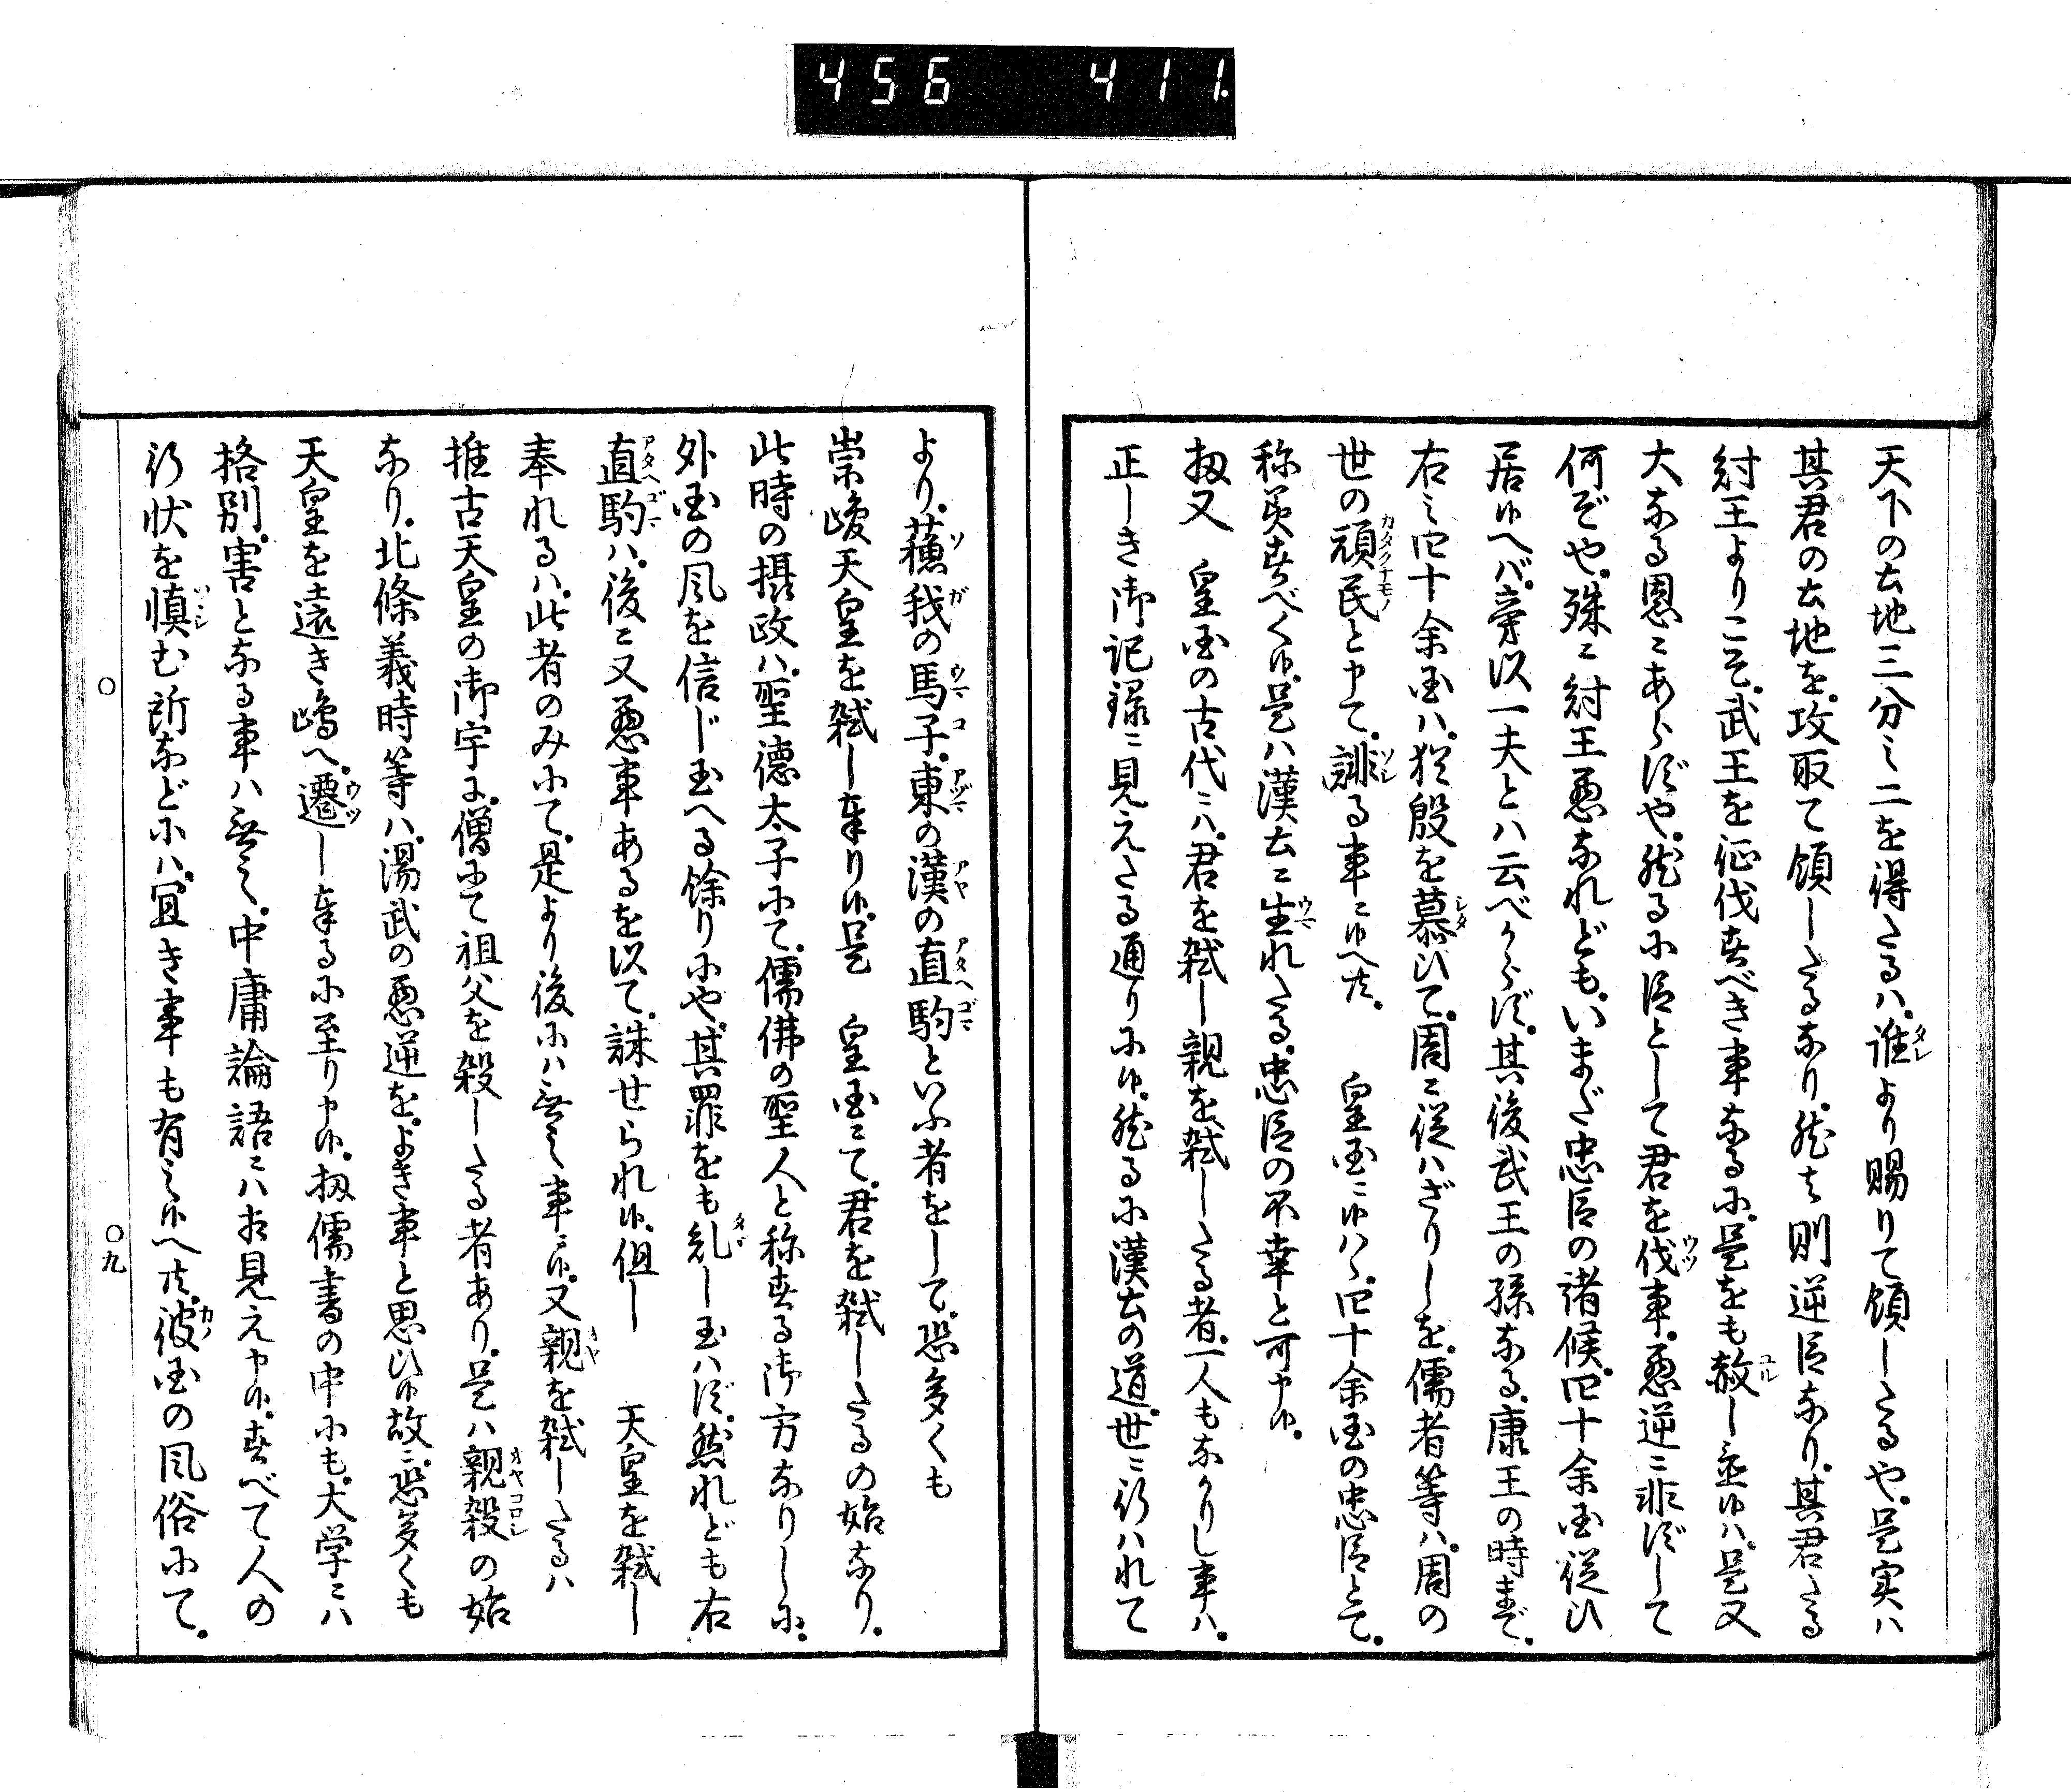 456 411.
天下の土地三分之二を得たるハ。誰より賜りて領したるや。是実ハ
其君の土地を。攻取て領したるなり。然レ者則逆臣なり。其君たる
紂王よりこそ。武王を征伐すべき事なるに。是をも赦し置候ハ。是又
大なる恩ニあらずや。然るに臣として君を伐事。悪逆ニ非ずして
何ぞや。殊ニ紂王悪なれども。いまだ忠臣の諸侯。四十余国従ひ
居候へバ。旁以一夫とハ云べからず。其後武王の孫なる。康王の時まで。
右之四十余国ハ。猶殷を慕ひて。周ニ従ハざりしを。儒者等ハ。周の
世の頑民と申て。誹る事ニ候へ共。 皇国ニ候ハヾ。四十余国の忠臣とて。
称美すべく候。是ハ漢土ニ生れたる。忠臣の不幸と可申候。
扨又 皇国の古代ニハ。君を弑し親を弑したる者。一人もなかりし事ハ。
正しき御記録ニ見えたる通りに候。然るに漢土の道。世ニ行ハれて
より。蘓我の馬子。東の漢の直駒といふ者をして。恐多くも
崇峻天皇を弑し奉り候。是 皇国ニて。君を弑したるの始なり。
此時の摂政ハ。聖徳太子にて。儒佛の聖人と称する御方なりしに。
外国の風を信じ玉へる餘りにや。其罪をも乱し玉ハず。然れども右
直駒ハ。後ニ又悪事あるを以て。誅せられ候。但し 天皇を弑し
奉れるハ。此者のみにて。是より後にハ無之事ニ候。又親を弑したるハ
推古天皇の御宇に。僧にて祖父を殺したる者あり。是ハ親殺の始
なり。北條義時等ハ。湯武の悪逆を。よき事と思ひ候故ニ。恐多くも
天皇を遠き嶋へ。遷し奉るに至り申候。扨儒書の中にも。大学ニハ
格別。害となる事ハ無之。中庸論語ニハ相見え申候。すべて人の
行状を慎む所などにハ。宜き事も有之候へ共。彼国の風俗にて。
〇 〇九